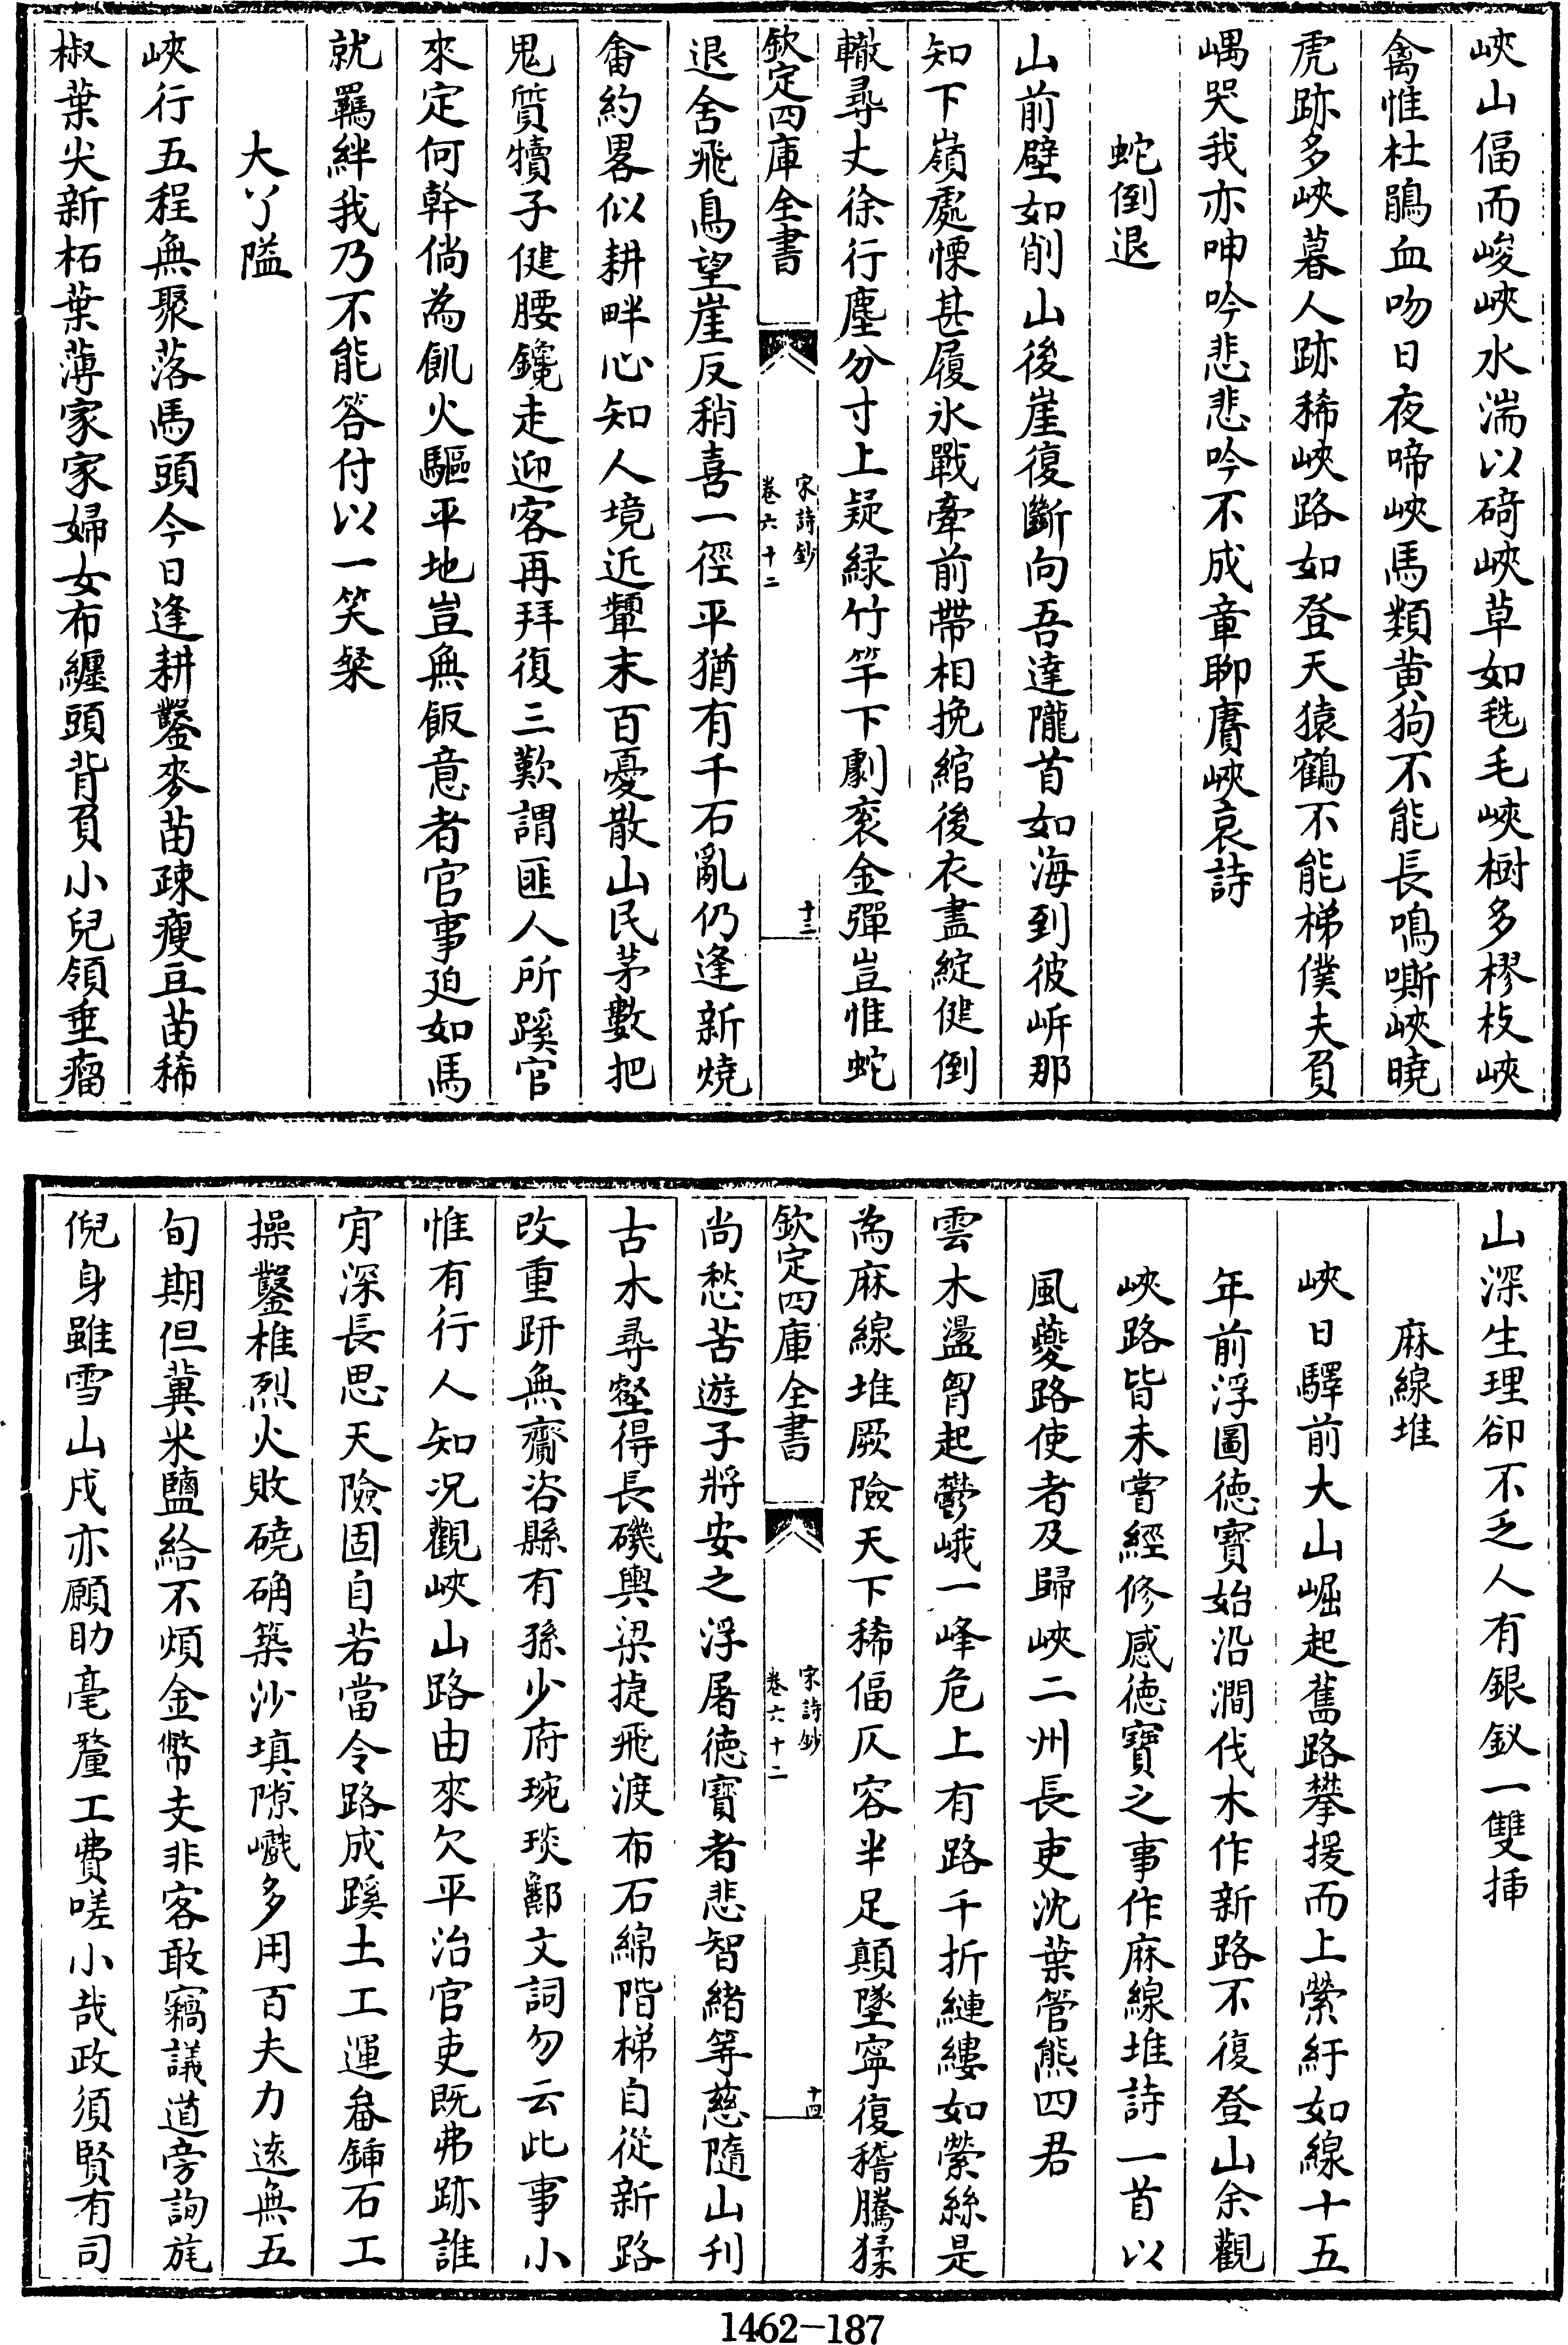 峽山偪而峻峽水湍以碕峽草如毨毛峽樹多樛枝峽
禽惟杜鵑血吻日夜啼峽馬類黄狗不能長鳴嘶峽曉
虎跡多峽暮人跡稀峽路如登天猿鶴不能梯僕夫負
嵎哭我亦呻吟悲悲吟不成章聊賡峽哀詩
蛇倒退
山前壁如削山後崖復斷向吾達隴首如海到彼岍那
知下嶺處慄甚履氷戰牽前帶相挽綰後衣盡綻健倒
轍尋丈徐行塵分寸上疑緑竹竿下劇衮金彈豈惟蛇
欽定四庫全書
宋詩鈔
卷六十二
十三
退舍飛鳥望崖反稍喜一徑平猶有千石亂仍逢新燒
畬約畧似耕畔心知人境近顰末百憂散山民茅數把
鬼質犢子健腰鑱走迎客再拜復三歎謂匪人所蹊官
來定何幹倘為飢火驅平地豈無飯意者官事廹如馬
就羈絆我乃不能答付以一笑粲
大丫隘
峽行五程無聚落馬頭今日逢耕鑿麥苗疎瘦豆苗稀
椒葉尖新柘葉薄家家婦女布纒頭背負小兒領垂瘤
山深生理卻不乏人有銀釵一雙揷
麻線堆
峽日驛前大山崛起舊路攀援而上縈紆如線十五
年前浮圖徳寶始沿澗伐木作新路不復登山余觀
峽路皆未嘗經修感徳寶之事作麻線堆詩一首以
風夔路使者及歸峽二州長吏沈葉管熊四君
雲木盪胷起鬱峨一峰危上有路千折縺縷如縈絲是
為麻線堆厥險天下稀偪仄容半足顛墜寧復稽騰猱
欽定四庫全書
宋詩鈔
卷六十二
十四
尚愁苦遊子將安之浮屠徳寳者悲智緒等慈隨山刋
古木尋壑得長磯輿梁㨗飛渡布石綿階梯自從新路
改重趼無齎咨縣有孫少府琬琰鄭文詞勿云此事小
惟有行人知况觀峽山路由來欠平治官吏既弗跡誰
肎深長思天險固自若當令路成蹊土工運畚鍤石工
操鑿椎烈火敗磽确築沙填隙巇多用百夫力逺無五
旬期但冀米鹽給不煩金幣支非客敢竊議道旁詢旄
倪身雖雪山戍亦願助毫釐工費嗟小哉政須賢有司
1462-187